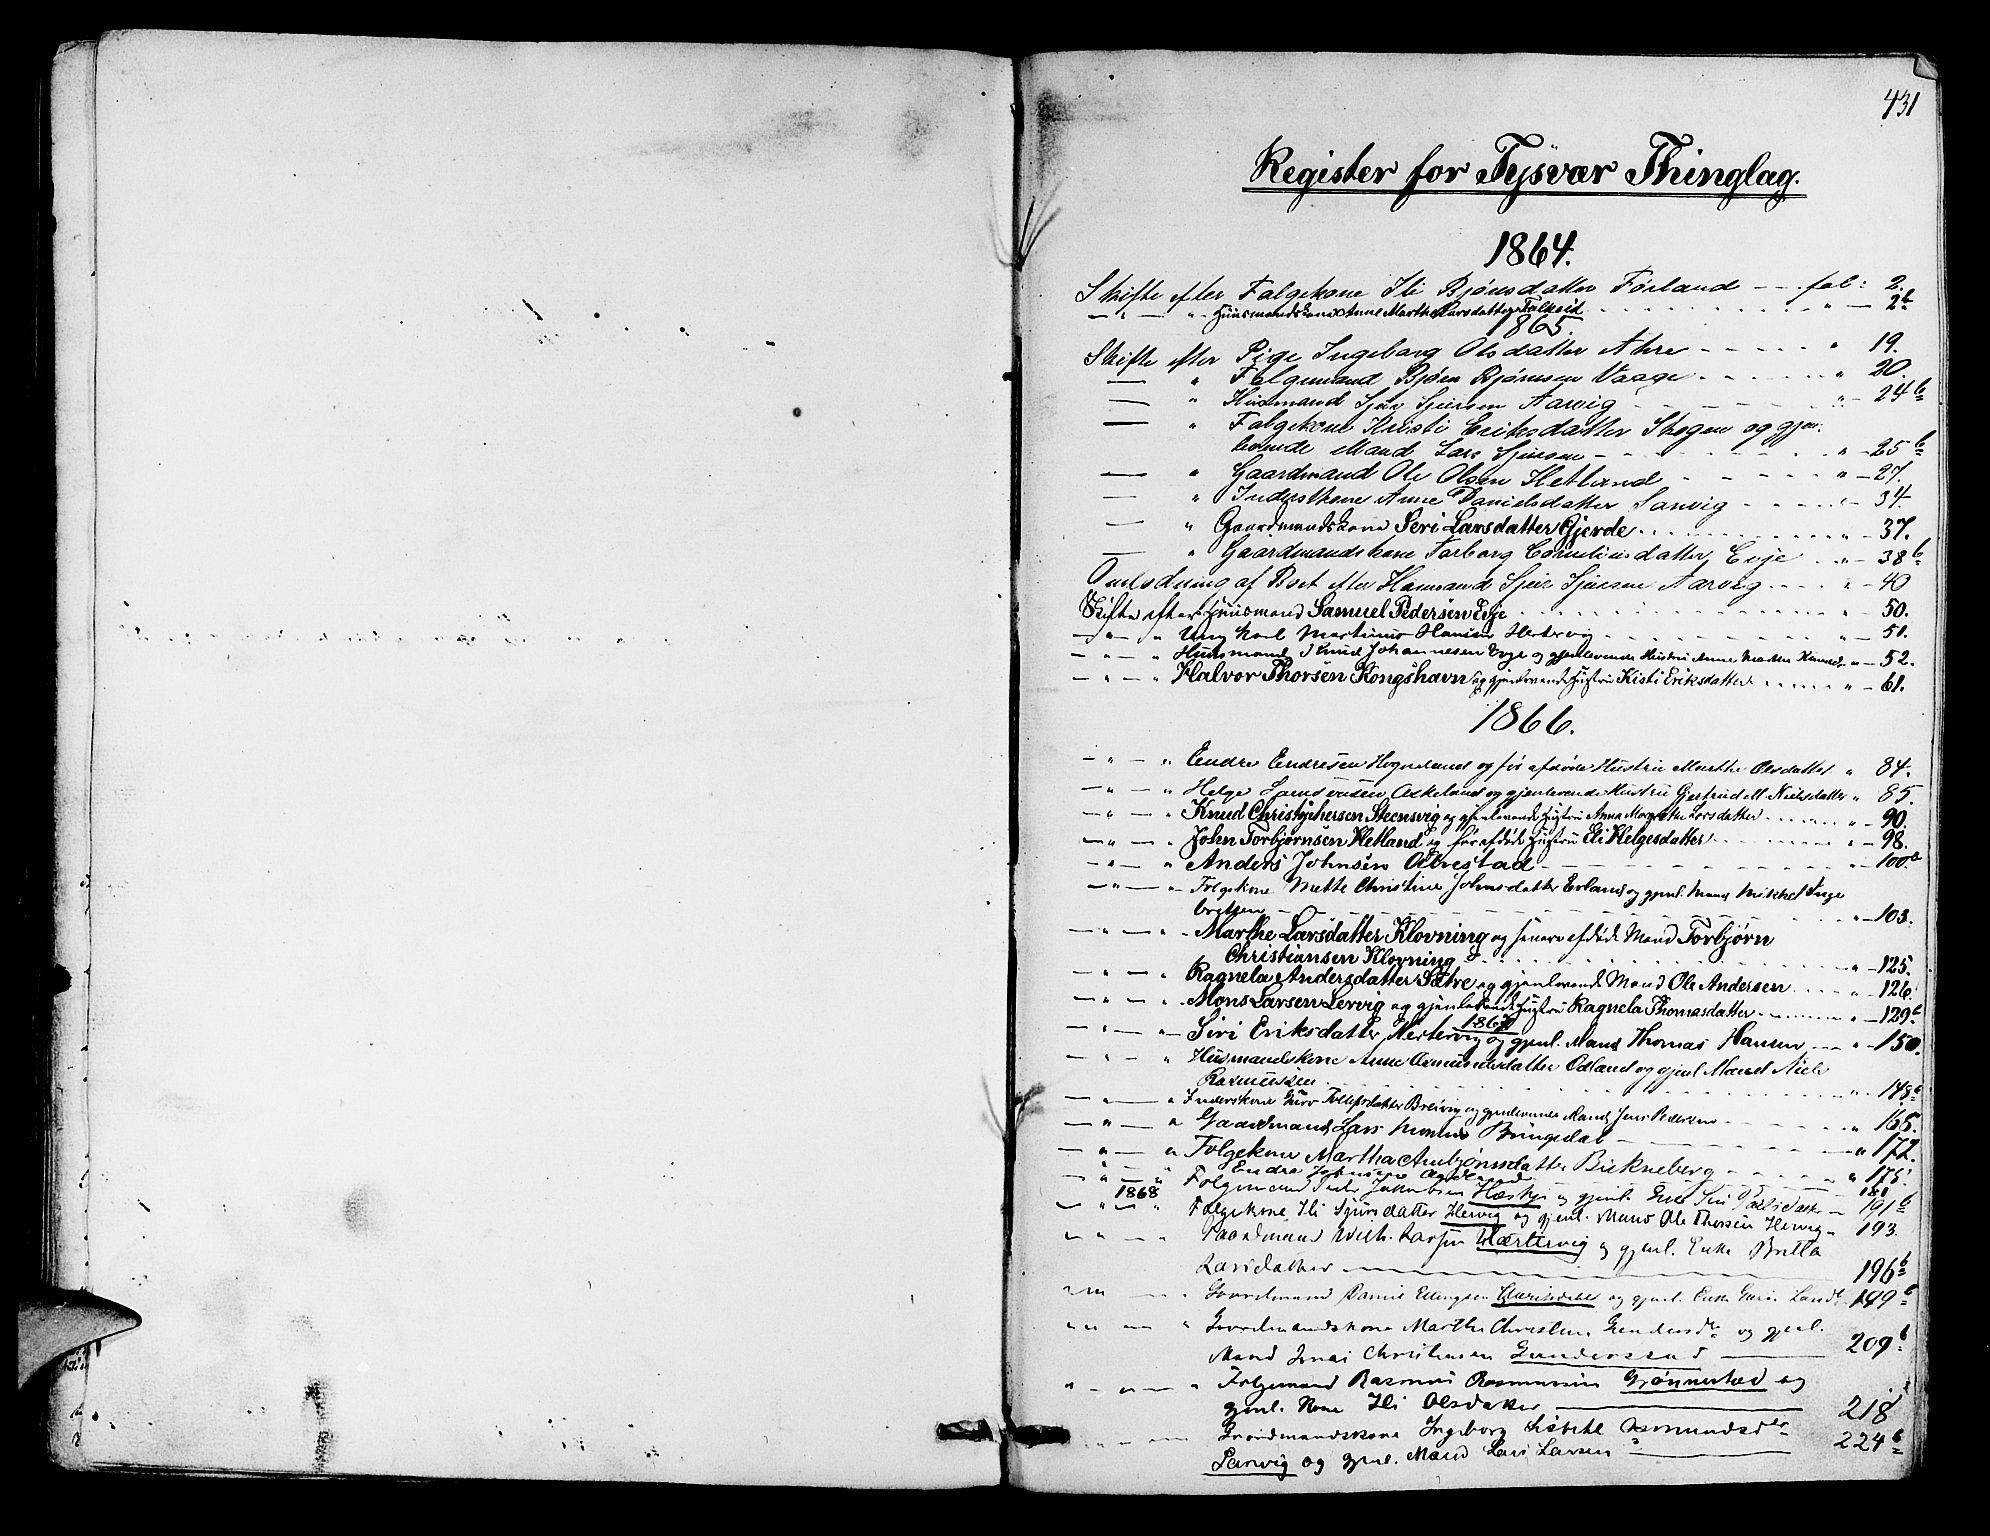 431
Register for Tysvær Thinglag.
1864.
Skifte efter Folgekone Ili Bjørnsdatter Førland - - . fol: 2.
— " — " Huusmandskone Anne Marthe Larsdatter Falkeid . . . . " — 2b
1865.
Skifte efter Pige Ingeborg Olsdatter - - - - " 19.
— " Folgemand Bjørn Bjørnsen Vaage - - - - " 20.
— " Husmand Sjur Sjursen Aarvig - - - - " — 24b
— " Folgekone Kristi Eriksdatter Stegen og gjen-
levende Mand Lars Sjursen - - - - " — 25b
— " Gaardmand Ole Olsen Hetland - - - - " — 27.
— " Inderstkone Anne Danielsdatter - - - - " — 34.
— " Gaardmandskone Seri Larsdatter Gjerde . . . . " 37.
— " Gaardmandskone Torborg Corneliusdatter Evje . . " — 38b
af Boet efter Husmand Sjur Sjursen Aarvig . . . . " — 40
Skifte efter Huusmand Samuel Pedersen Evje . . . . " — 50.
— " — " Ung Karl Martinus Hansen Hertervig - - - - " — 51.
— " — " Husmand Knud Johannesen Evje og gjenlevende Hustru Anne Marthe " — 52.
— " — " Halvor Thorsen Kongshavn og gjenlevende Hustru Kisti Eriksdatter . . . . " — 61.
1866.
— " — " Endre Endresen Hogneland og før afdøde Hustru Marthe Olsdatter " 84.
— " — " Helge Askeland og gjenlevende Hustru Gjertrud M. Nielsdatter " 85.
— " — " Knud Christophersen Steensvig og gjenlevende Hustru Anna Margrethe Larsdatter . . . . " — 90.
— " — " John Torbjørnsen Hetland og før afdøde Hustru Eli Helgesdatter . . . . " — 98.
— " — " Anders Johnsen - - - - " — 100b
— " — " Folgekone Mette Christine Johnsdatter Erland og gjenl. Mand Mikkel Inge
bretsen - - - - " — 103.
— " — " Marthe Larsdatter Klovning og senere afdøde Mand Torbjørn
Christiansen Klovning . . . . " — 125.
— " — " Ragnela Andersdatter Sætre og gjenlevende Mand Ole Andersen . . . . " — 126.
— " — " Mons Larsen Lervig og gjenlevende Hustru Ragnela Thomasdatter . . . . " — 129b
1867
— " — " Siri Eriksdatter Hertervig og gjenl. Mand Thomas Hansen — . " — 150.
" — " — " Husmandskone Anne Osmundsdatter Odland og gjenl Mand Niels
Rasmussen . . . . " 148b
— " — " Inderskone Guro Tollefsdatter Breivig og gjenlevende Mand Jens Pedersen - - - - " 165.
— " — " Gaardmand Lars Bringedal - - - - " 172.
— " — " Folgekone Martha Arnbjørnsdatter Birkneberg - - - - " 175.
— " — " Endre Johnsen - - - - 181
1868 Folgemand Peder Jakobsen og gjenl. Enke Siri — 191b
" — " — " Folgekone Ili Sjursdatter Hervig og gjenl. Mand Ole Thorsen Hervig " 193.
— " — " Gaardmand Hærtervig og gjenl. Enke Britta
Larsdatter — 196b
" — " Gaardmand Daniel Ellingsen og gjenl. Enke — 199b
" " — " Gaardmandskone Marthe Christine og gjenl.
Mand Jonas Christensen Gunderstad — 209b
" — " — " Folgemand Rasmus Rasmussen Grønnestad og
gjenl. Kone Ili Olsdatter — 218
Gaardmandskone Ingeborg Lisbeth Osmundsdtr
og gjenl. Mand Lars Larsen — 224b